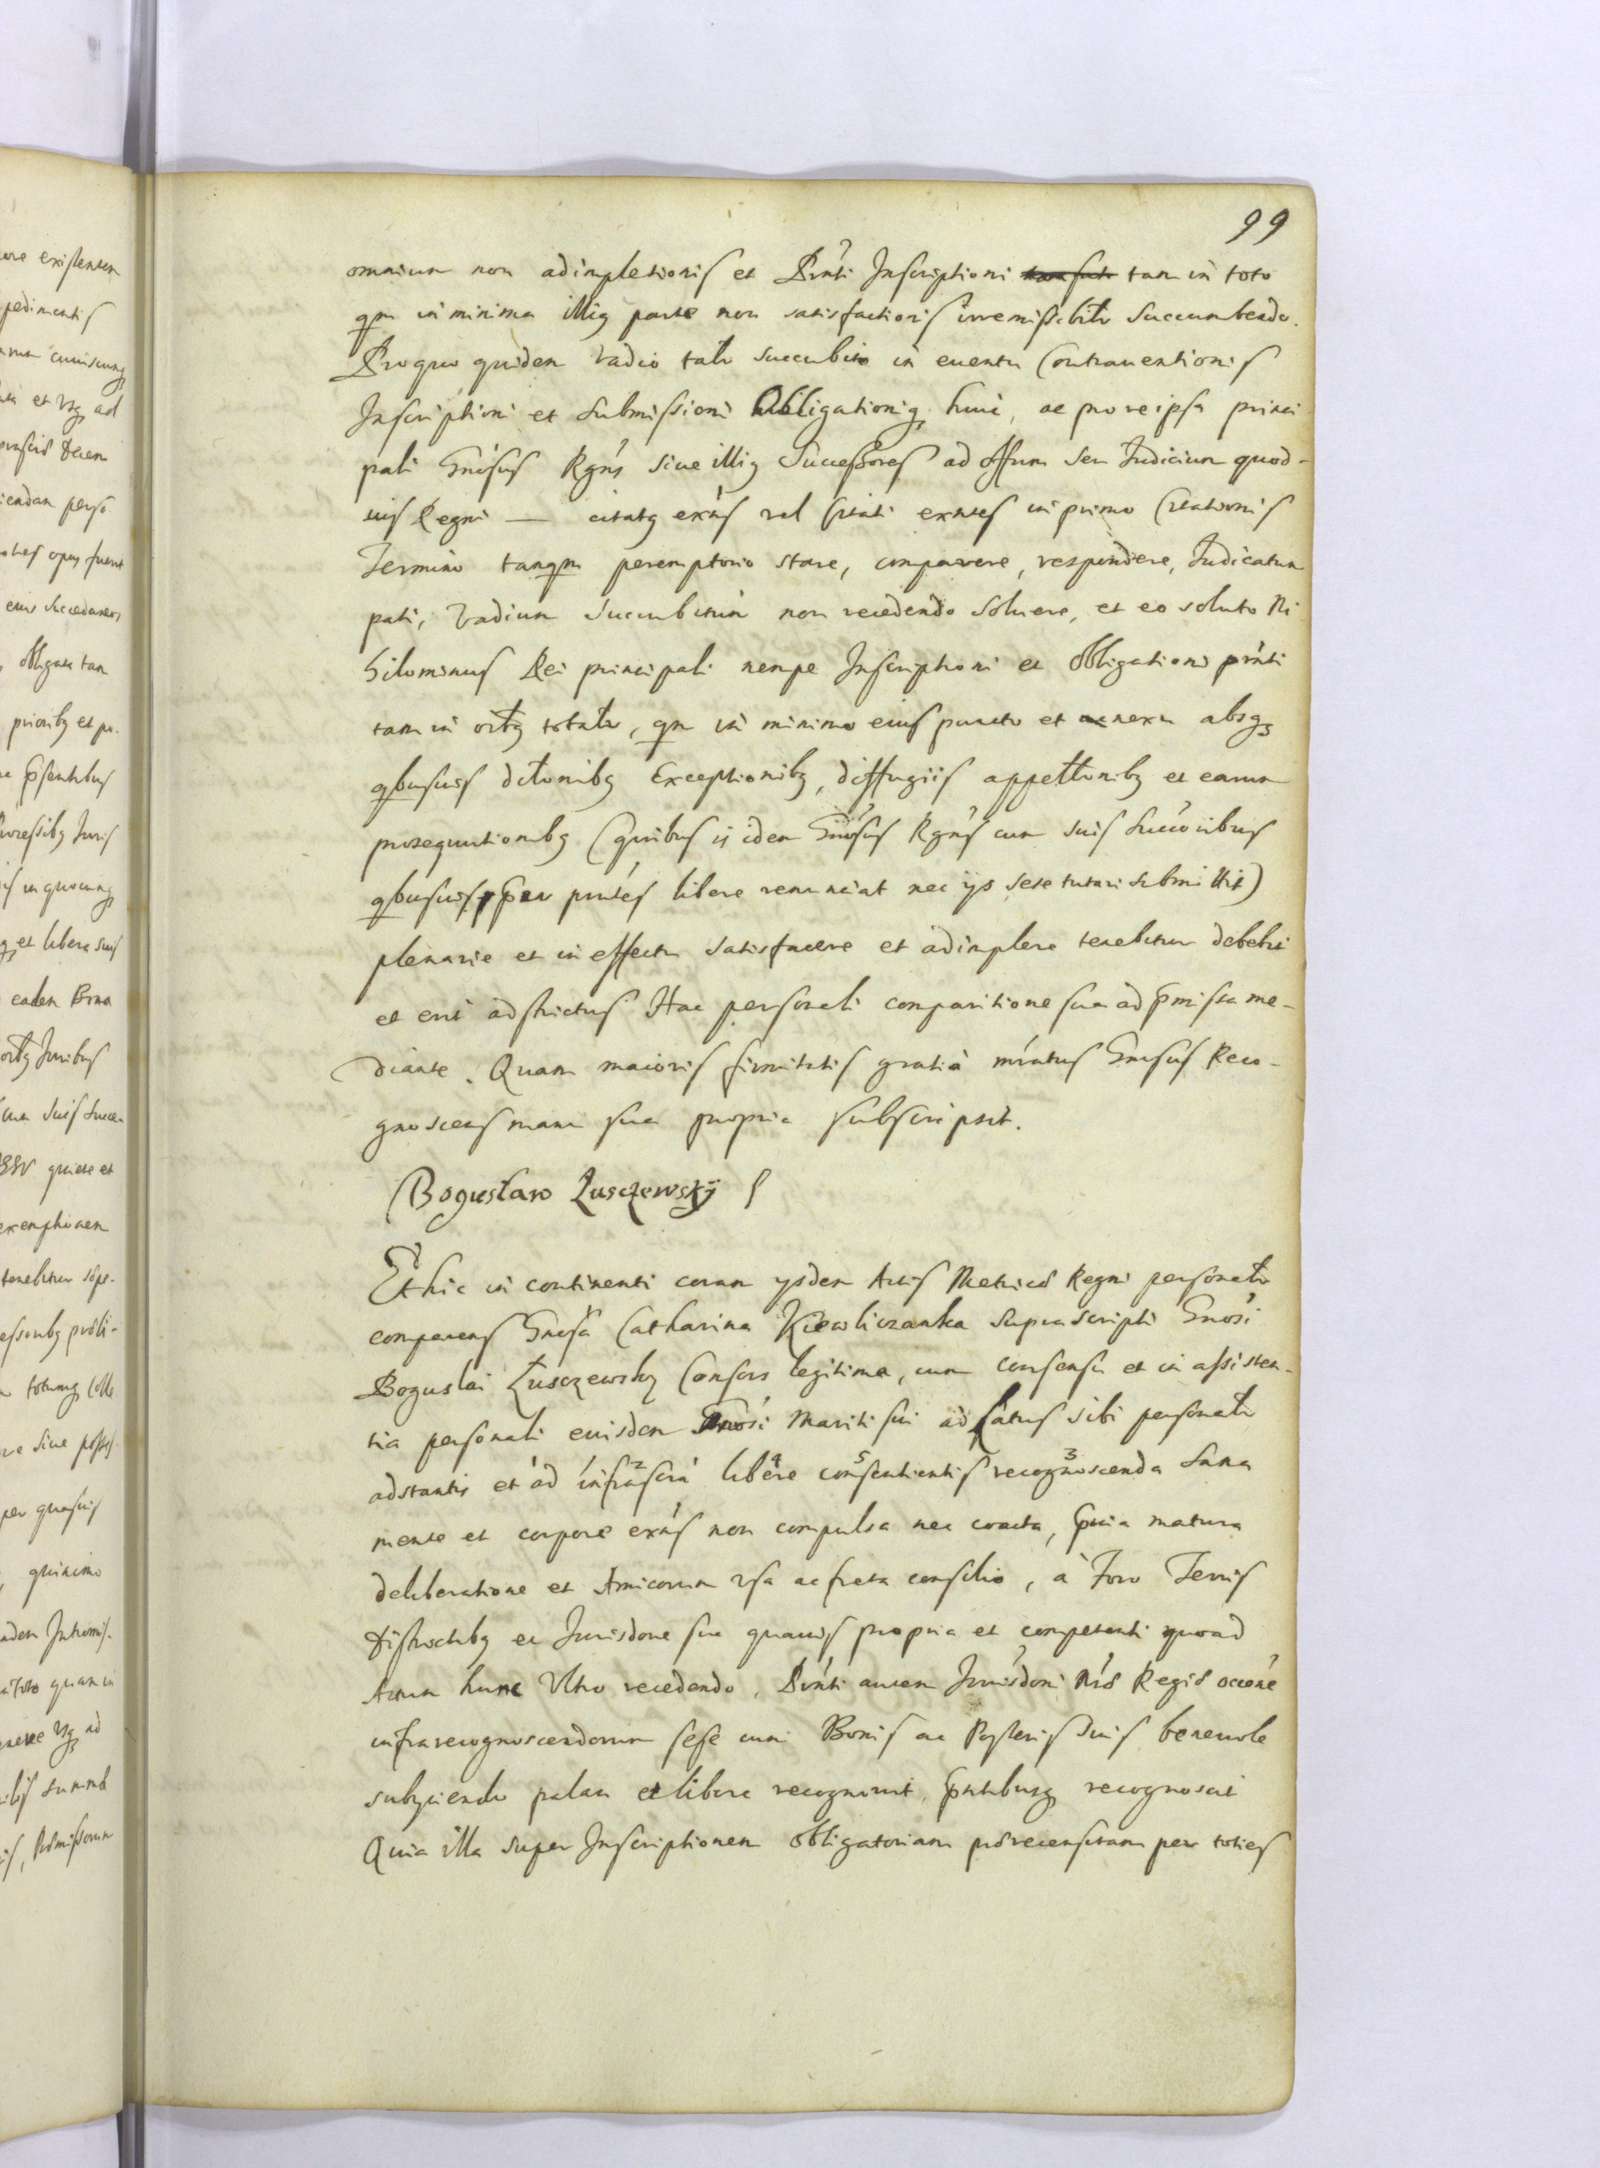 99
omnium non adimpletionis et Prńti Inscriptioni tam in toto
qm in minima illiq parte non satisfactionis irremissibilr Succumbendo.
Pro quo quidem Vadio talr succubito in euentu Contrauentionis
Inscriptioni et Submissioni Obligationiq huic, ac pro re ipsa princi
pali Gnósus Rgńs siue illiq Successores ad Offum seu Iudicium quod-
uis Regni — citatq exńs vel Citati exntes in primo Citationis
Termino tanqm peremptorio stare, comparere, respondere, Iudicatum
pati, Vadium succubitum non recedendo Soluere, et eo soluto Ni
hilominus Rei principali nempe Inscriptioni et Obligationi prńti
tam in oitq totalr, qm in minimo eius puncto et nexu absqȝ
qbusuis diltonibq Exceptionibq, diffugiis appelltonibq et earum
prosequutionibq (quibus ij idem Gnósus Rgńs cum suis Succóribus
qbusuis per prńtes libere renunciat nec ijs sese tutari submittit)
plenarie et in effectu satisfacere et adimplere tenebitur debebit
et erit adstrictus Hac personali comparitione sua ad pmissa me-
diante. Quam maioris firmitatis gratia mńatus Gnosus Reco-
gnoscens manu sua propria subscripsit.
Bogusław Łusczewskÿ
Et hic in continenti coram ijsdem Actis Metrices Regni personalr
comparens Gnosa Catharina Kiewliczanka suprascripti Gnosi
Boguslai Łusczewsky Consors legitima, cum consensu et in assisten-
tia personali eiusdem Gnosi Mariti sui ad latus sibi personalr
adstantis et ad infrascra libere consentientis recognoscenda Sana
mente et corpore exńs non compulsa nec coacta, quia matura
deliberatione et Amicorum vsa ac freta consilio, à Foro Terris
Districtibq et Iurisdone sua quauis propria et competenti quoad
Actum hunc Vltro recedendo, Prńti autem Iurisdoni Mtis Regis occóne
infrarecognoscendorum sese cum Bonis ac Posteris suis beneuole
subijciendo palam et libere recognouit, prntibusqȝ recognoscit
Quia illa super Inscriptionem Obligatoriam prórecensitam per toties